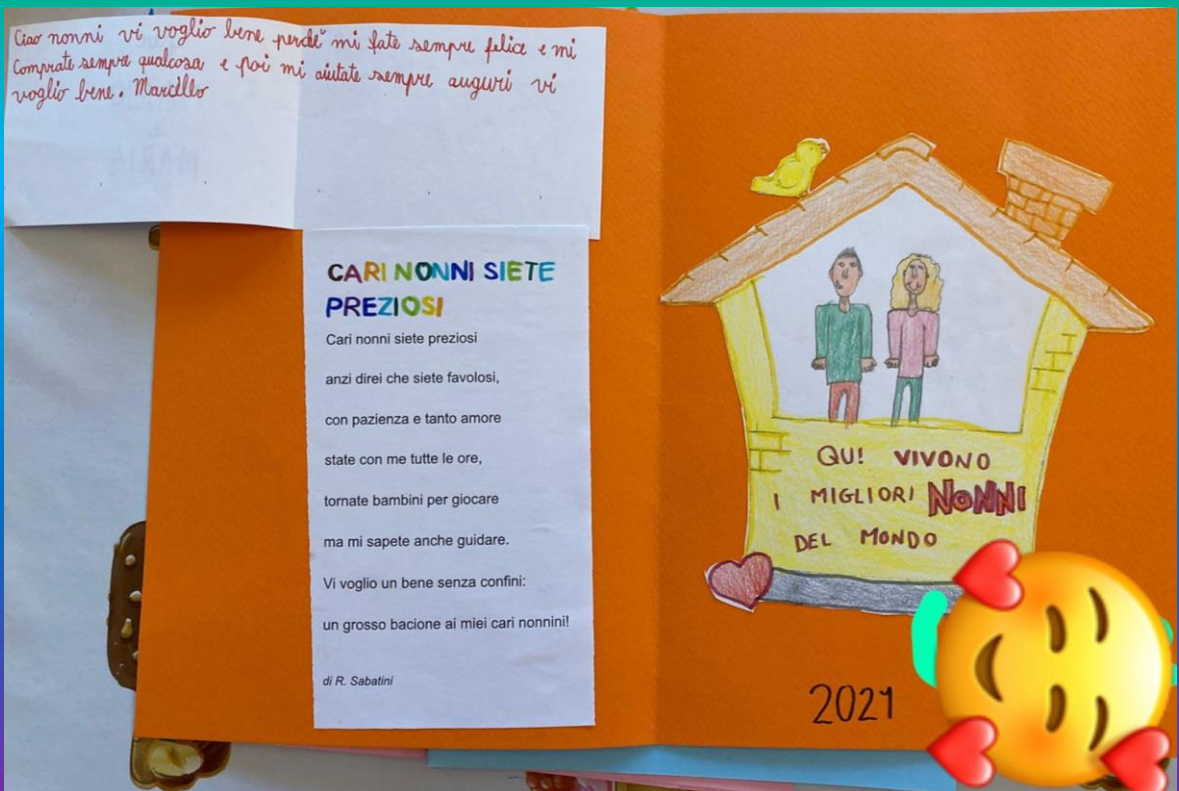 Ciao nonni vi voglio bene perché mi fate sempre felice e mi
Comprate sempre qualcosa e poi mi aiutate sempre auguri vi
voglio bene. Marcello
CARI NONNI SIETE
PREZIOSI
Cari nonni siete preziosi
anzi direi che siete favolosi,
con pazienza e tanto amore
state con me tutte le ore,
tornate bambini per giocare
ma mi sapete anche guidare.
Vi voglio un bene senza confini:
un grosso bacione ai miei cari nonnini!
di R. Sabatini
QUI VIVONO
I MIGLIORI NONNI
DEL MONDO
2021